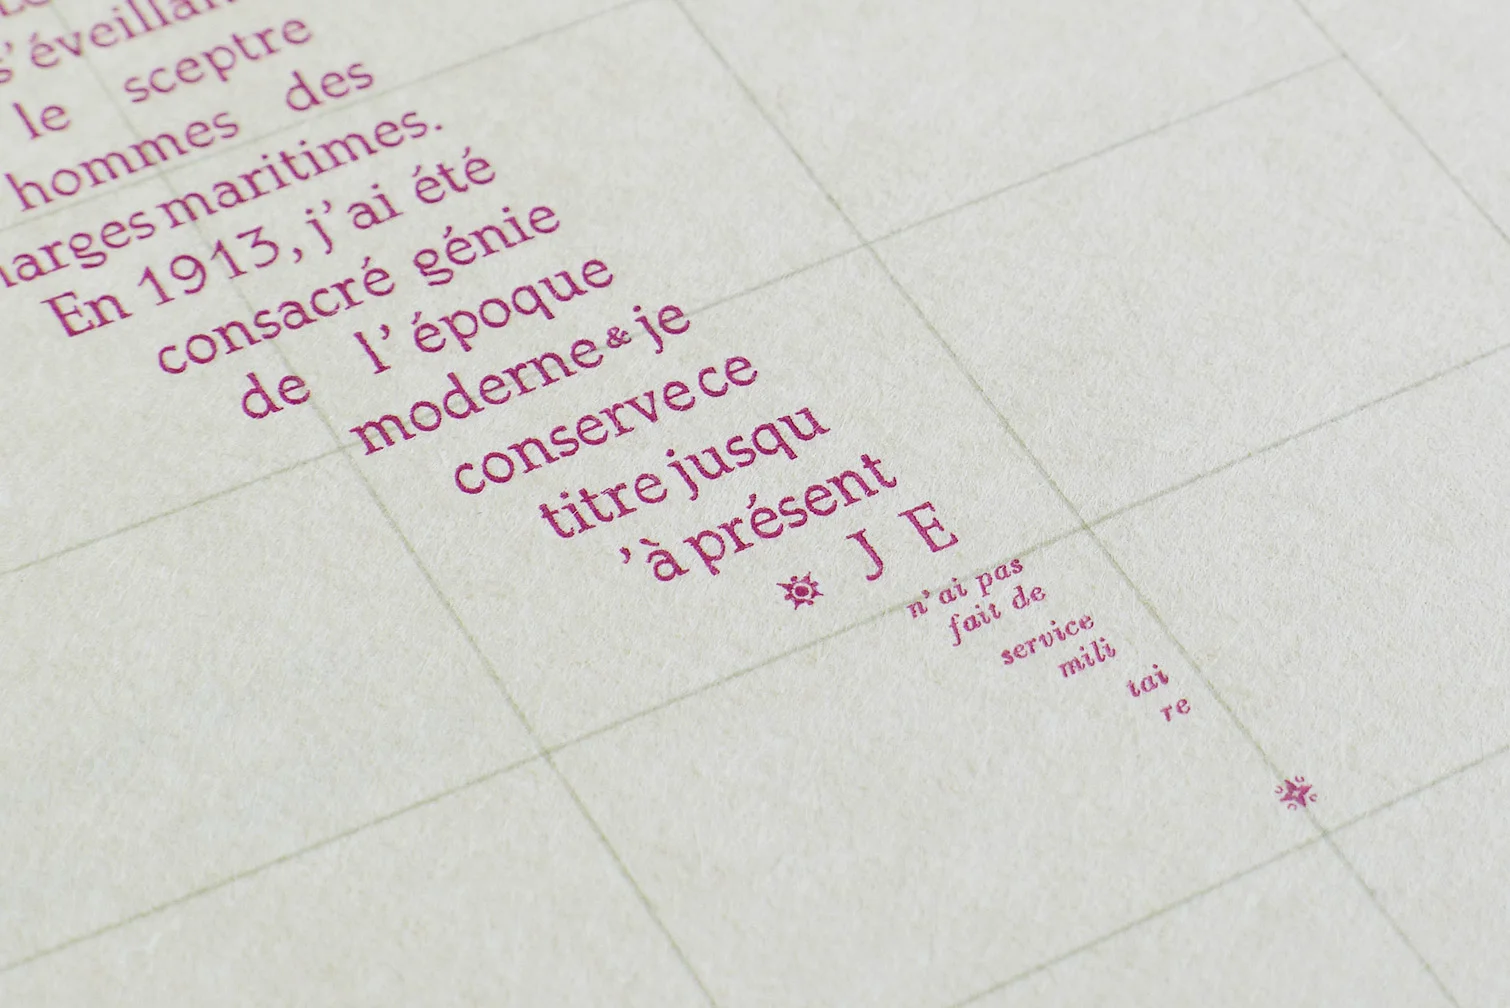 s'éveillan
le sceptre
hommes des
harges maritimes.
En 1913, j'ai été
consacré génie
de l'époque
moderne & je
conserve ce
titre jusqu
'à présent
J E
n'ai pas
fait de
service
mili
tai
re